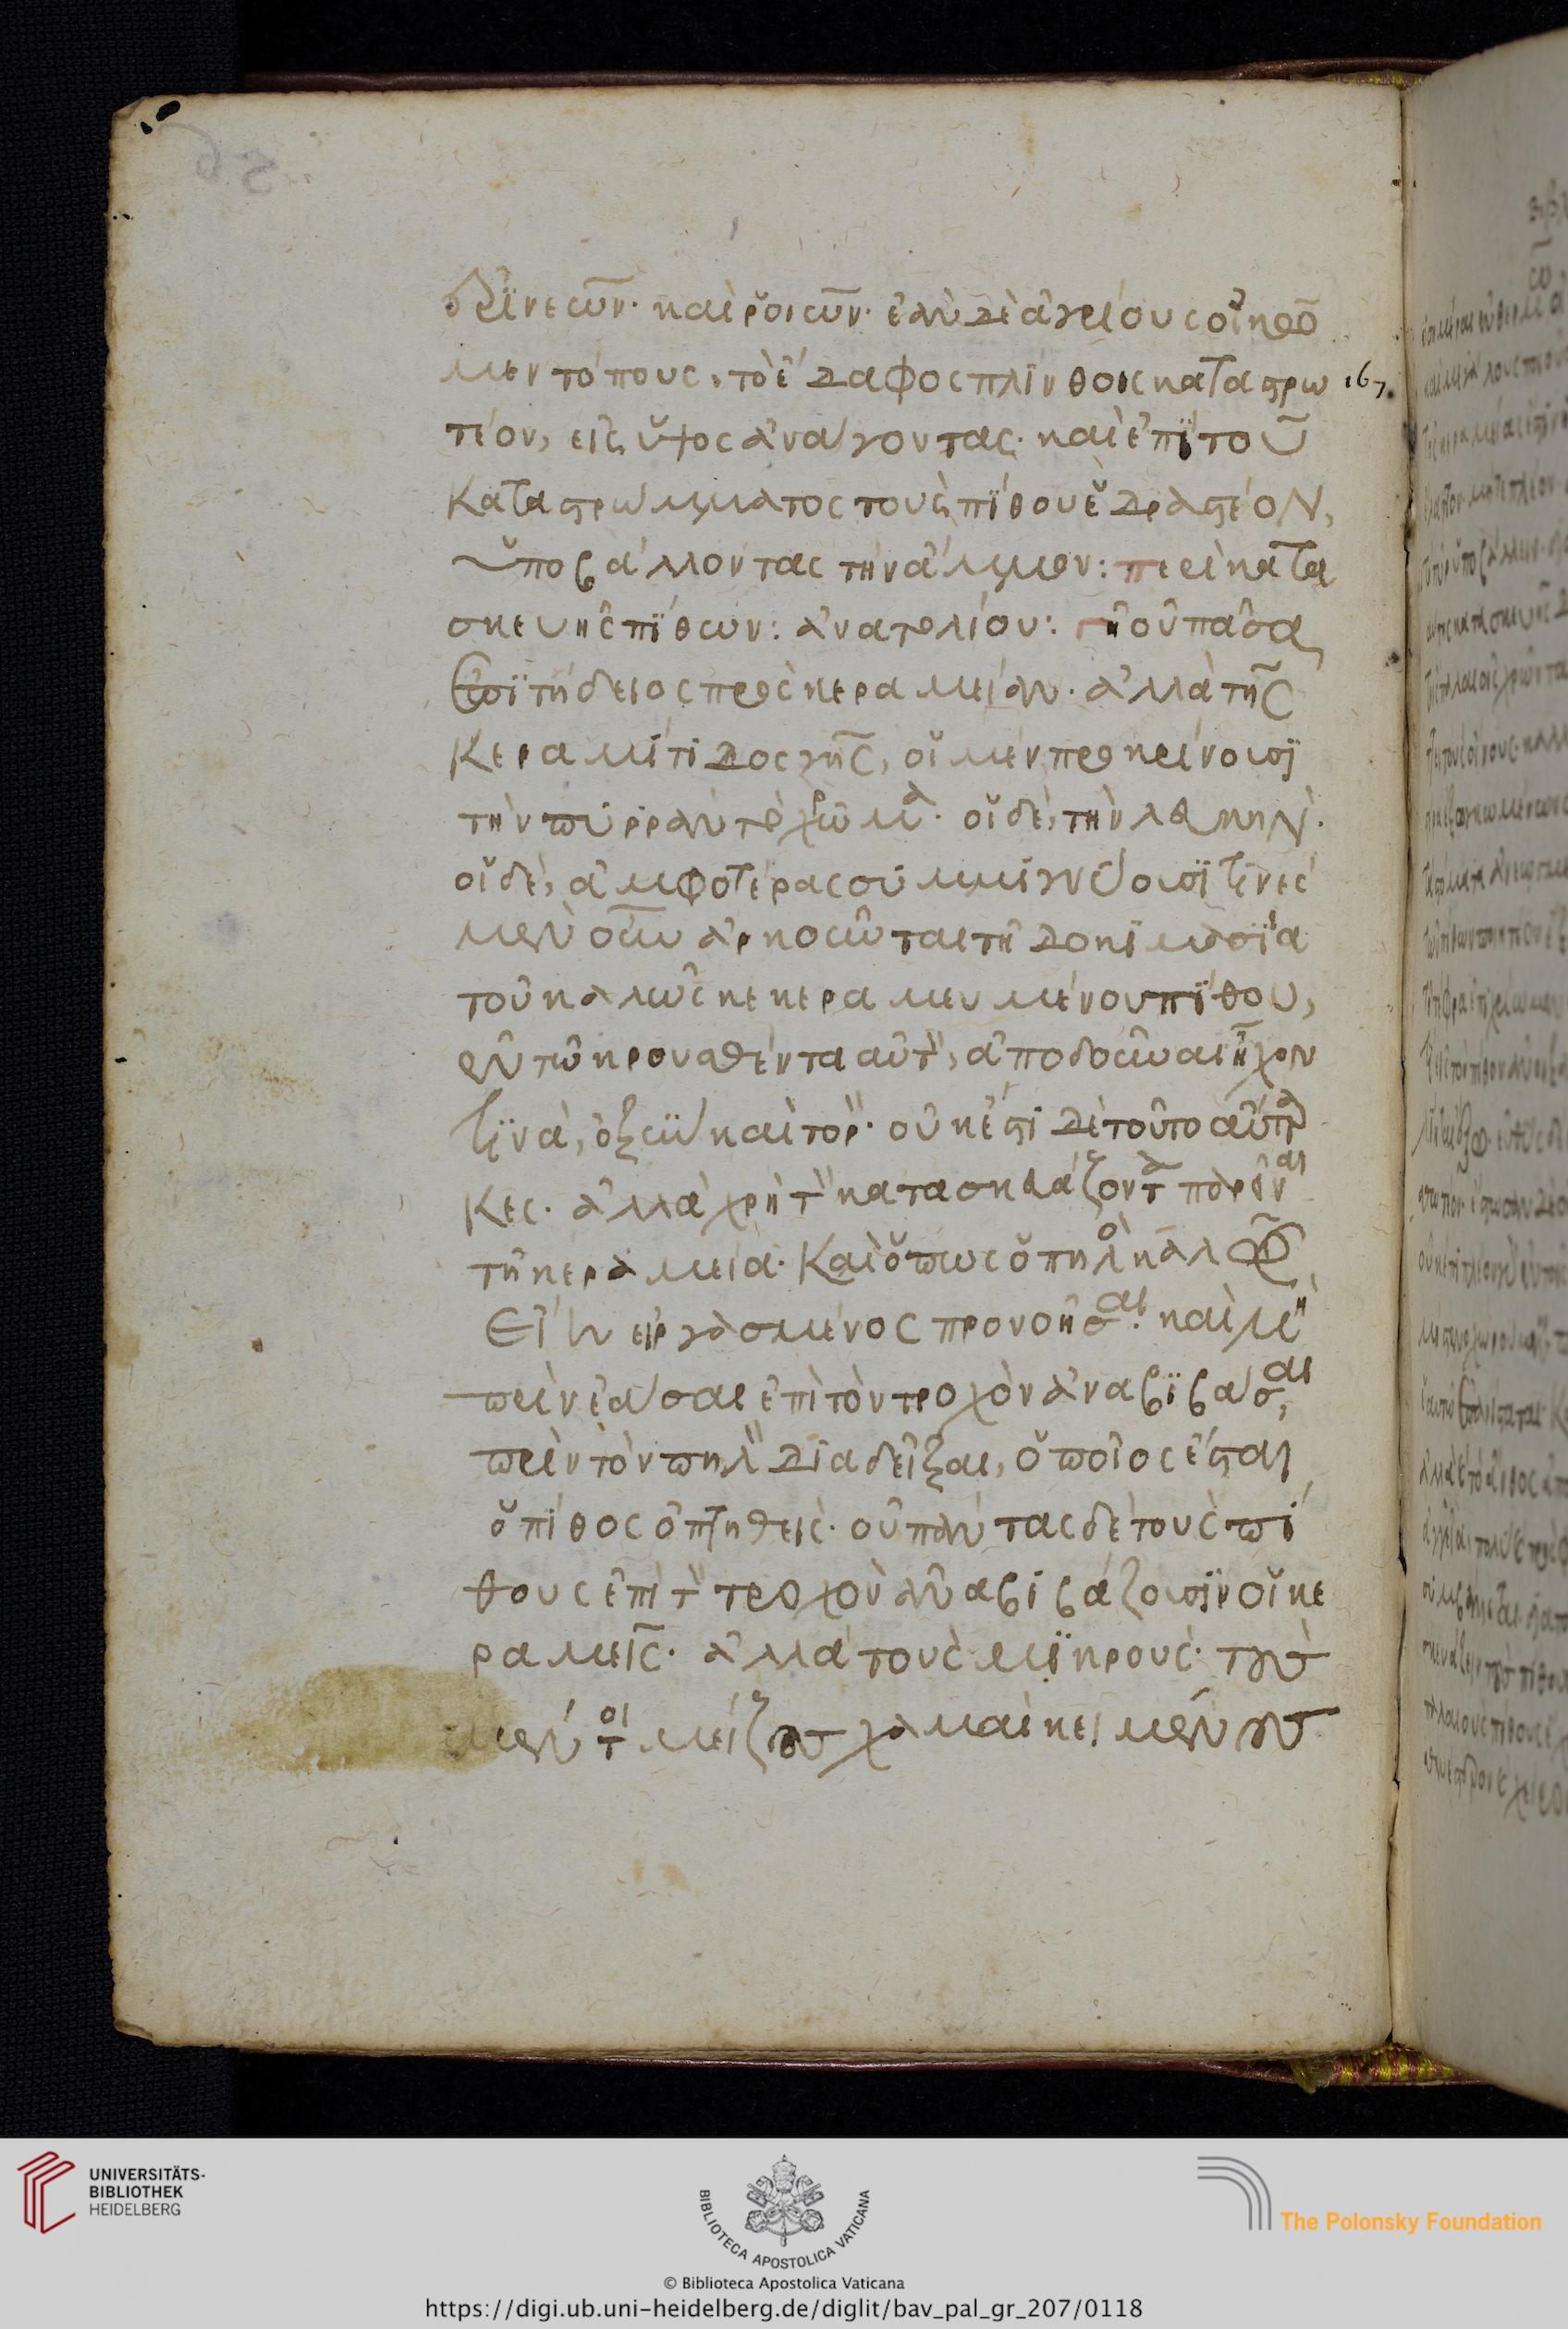 δρΐνεσῦν· καὶ ῥοισῦν· ἐὰν δὲ ἀγρίους οἰκοῦ
μεν τόπους, τὸ ἔδαφος πλίνθοις καταστρω 167.
τέον, εἰς ὕψος ἀνάγοντας· καὶ ἐπῒ τοῦ
καταστρώμματος τοὺς πΐθου ἑδραστέον,
ὑποβάλλοντας τὴν ἄμμον: περὶ κατα
σκευῆς πΐθων: ἀνατολίου: γῆ οὐ πᾶσα
ἐπϊτήδειος πρὸς κεραμείαν· ἀλλὰ τῆς
κεραμίτιδος γῆς, οἱ μὲν προκρίνουσϊ
τὴν πύρραν τὸ χρῶμα· οἱ δὲ, τὴν λευκὴν·
οἱ δὲ, ἀμφοτέρας συμμιγνύουσϊ τινὲς
μὲν οὖν ἀρκοῦνται τῆ δοκιμασΐα
τοῦ καλῶς κεκεραμευμένου πΐθου,
ἐν τῶ κρουσθέντα αὐτὸν, ἀποδοῦναι ἦχον
τϊνὰ, ὀξὺν καὶ τορὸν· οὐκ ἔστι δὲ τοῦτο αὔταρ
κες· ἀλλὰ χρὴ τὸν κατασκευάζοντα παρεῖναι
τῆ κεραμεία· καὶ ὅπως ὁ πηλὸς καλῶς
εἴη εἰργασμένος προνοῆσαι· καὶ μὴ
πρὶν ἐάσαι ἐπὶ τὸν τροχὸν ἀναβϊβάσαι,
πρὶν τὸν πηλὸν διαδεῖξαι, ὁποῖος ἔσται
ὁ πίθος ὀπτηθεὶς· οὐ πάντας δὲ τοὺς πί
θους ἐπὶ τὸν τροχὸν ἀναβιβάζουσϊν οἱ κε
ραμεῖς· ἀλλὰ τοὺς μϊκροὺς· τοὺς
μέντοι μείζους χαμαὶ κειμένους
UNIVERSITÄTS-
BIBLIOTHEK
HEIDELBERG
BIBLIOTECA APOSTOLICA VATICANA
The Polonsky Foundation
© Biblioteca Apostolica Vaticana
https://digi.ub.uni-heidelberg.de/diglit/bav_pal_gr_207/0118